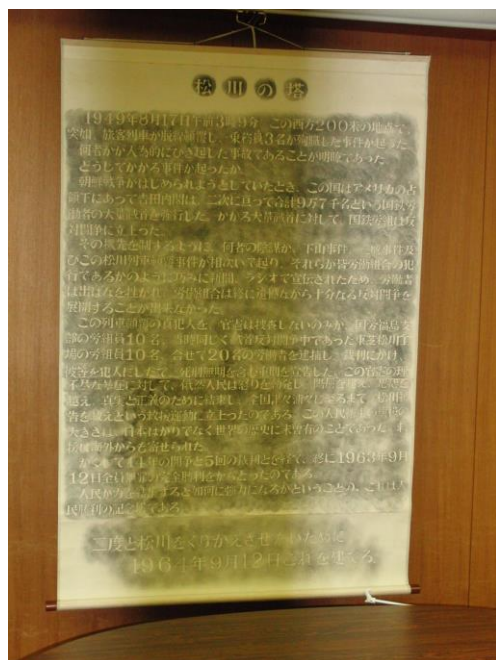 松川の塔
1949年8月17日午前3時9分、この西方200米の地点で、
突如、旅客列車が脱線顛覆し、乗務員3名が殉職した事件が起った。
何者かが人為的にひき起した事故であることが明瞭であった。
どうしてかかる事件が起ったか。
朝鮮戦争がはじめられようとしていたとき、この国はアメリカの占
領下にあって吉田内閣は、二次に亘って合計9万7千名という国鉄労
働者の大量馘首を強行した。かかる大量馘首に対して、国鉄労組は反
対闘争に立上った。
その機先を制するように、何者の陰謀か、下山事件、三鷹事件及
びこの松川列車顛覆事件が相次いで起り、それらが皆労働組合の犯
行であるかのように巧みに新聞、ラジオで宣伝されたため、労働者
は出ばなを挫かれ、労働組合は終に遺憾ながら十分なる反対闘争を
展開することが出来なかった。
この列車顛覆の真犯人を、官憲は捜査しないのみか、国労福島支
部の労組員10名、当時同じく馘首反対闘争中であった東芝松川工
場の労組員10名、合せて20名の労働者を逮捕し、裁判にかけ、
彼等を犯人にしたて、死刑無期を含む重刑を宣告した。この官憲の理
不尽な暴圧に対して、俄然人民は怒りを勃発し、階層を超え、思想を
越え、真実と正義のために結束し、全国津々浦々に至るまで、松川被
告を救えという救援運動に立上ったのである。この人民結束の規模の
大きさは、日本ばかりでなく世界の歴史に未曾有のことであった。救
援は海外からも寄せられた。
かくして14年の闘争と5回の裁判とを経て、遂に1963年9月
12日全員無罪の完全勝利をかちとったのである。
人民が力を結集すると如何に強力になるかということの、これは人
民勝利の記念塔である。
1964年9月12日これを建てる